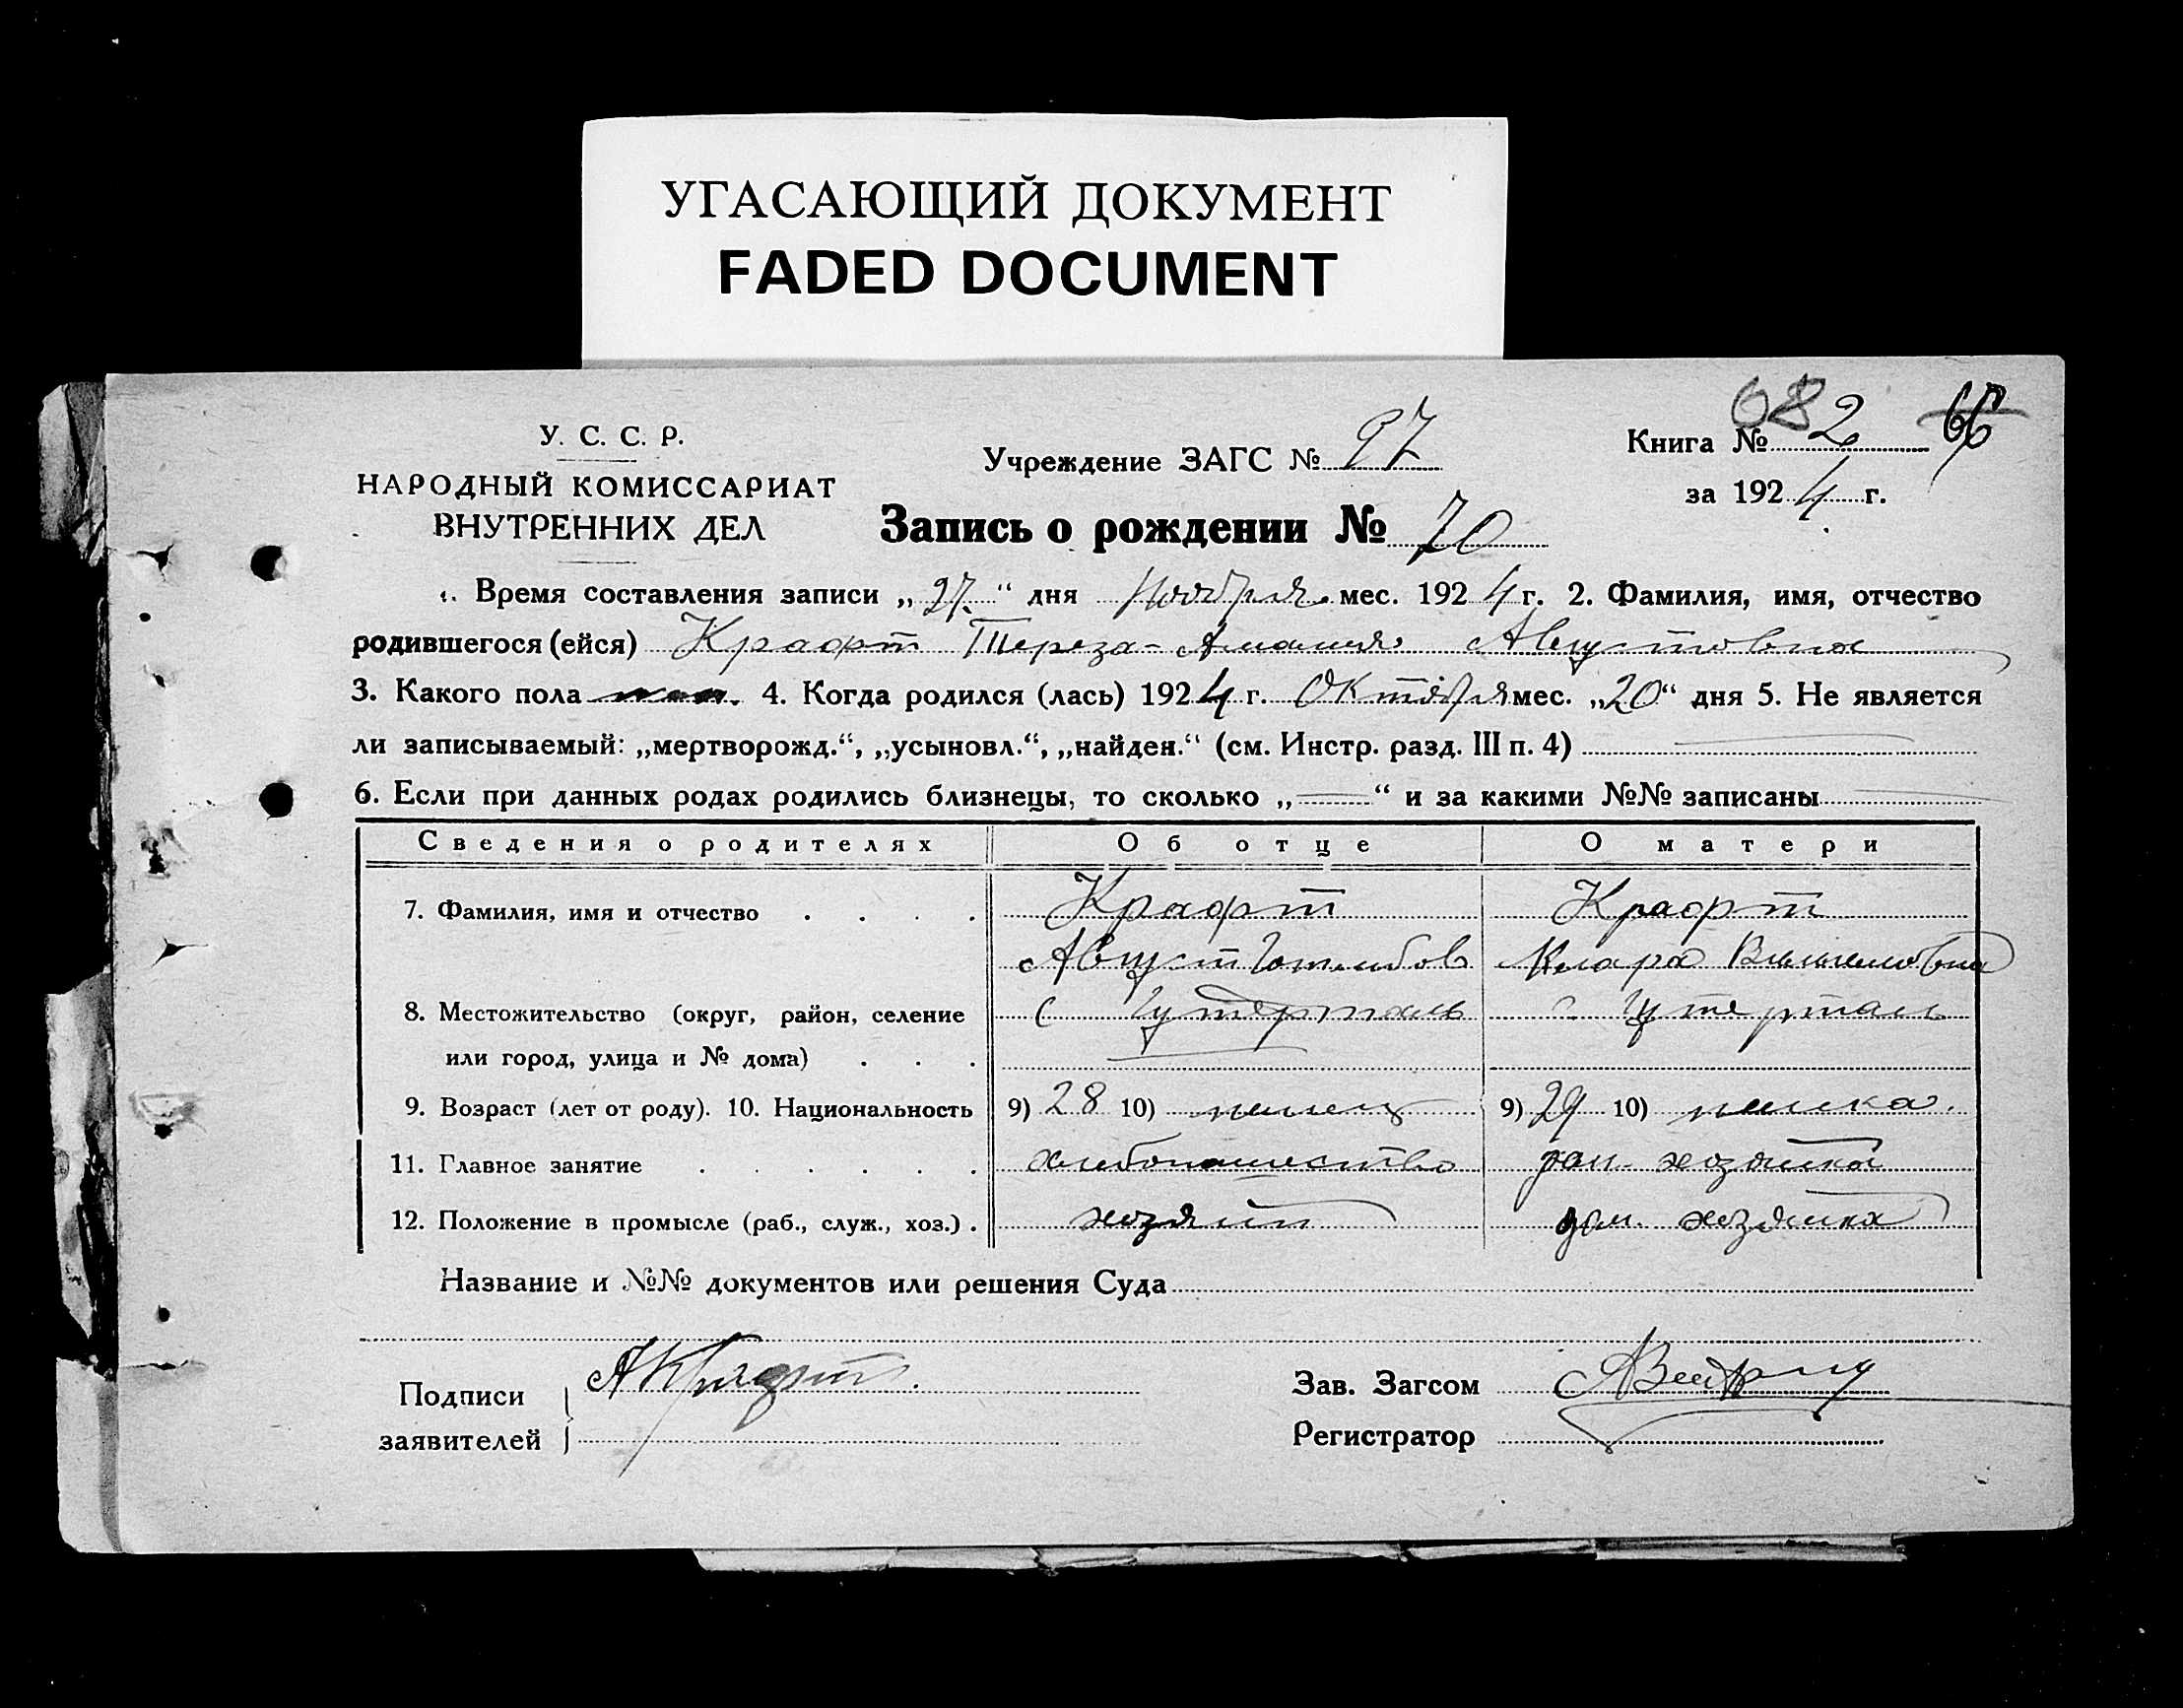 УГАСАЮЩИЙ ДОКУМЕНТ
FADED DOCUMENT
У. С. С. Р.
НАРОДНЫЙ КОМИССАРИАТ
ВНУТРЕННИХ ДЕЛ
Учреждение ЗАГС № 97
682 66
Книга № 2
за 1924 г.
Запись о рождении № 70
1. Время составления записи „27.“ дня Ноября мес. 1924 г. 2. Фамилия, имя, отчество
родившегося (ейся) Крафт Тереза-Амалия Августовна
3. Какого пола жен. 4. Когда родился (лась) 1924 г. Октября мес. „20“ дня 5. Не является
ли записываемый: „мертворожд.“, „усыновл.“, „найден.“ (см. Инстр. разд. III п. 4) —
6. Если при данных родах родились близнецы, то сколько „—“ и за какими №№ записаны —
Сведения о родителях Об отце О матери
7. Фамилия, имя и отчество . . . . Крафт Крафт
Август Готлибов Клара Вильгельмовна
8. Местожительство (округ, район, селение с Гутерталь с Гутерталь
или город, улица и № дома) . . .
9. Возраст (лет от роду). 10. Национальность 9) 28 10) немец 9) 29 10) немка.
11. Главное занятие . . . . . . хлебопашество дом. хозяйка
12. Положение в промысле (раб., служ., хоз.) . хозяин дом. хозяйка
Название и №№ документов или решения Суда
Подписи заявителей } АКрафт
Зав. Загсом
Регистратор